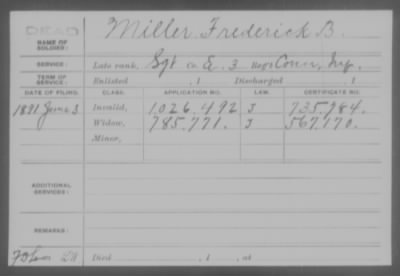 DEAD
NAME OF SOLDIER: Miller, Frederick B.
SERVICE: Late rank, Sgt Co. E, 3 Reg't Conn. Inf.
TERM OF SERVICE: Enlisted , 1 Discharged , 1
DATE OF FILING. CLASS. APPLICATION NO. LAW. CERTIFICATE NO.
1891 June 3 Invalid, 1,026,492 J 735,984.
Widow, 785,771. J 567,170.
Minor,
ADDITIONAL SERVICES:
REMARKS:
Died , 1 , at